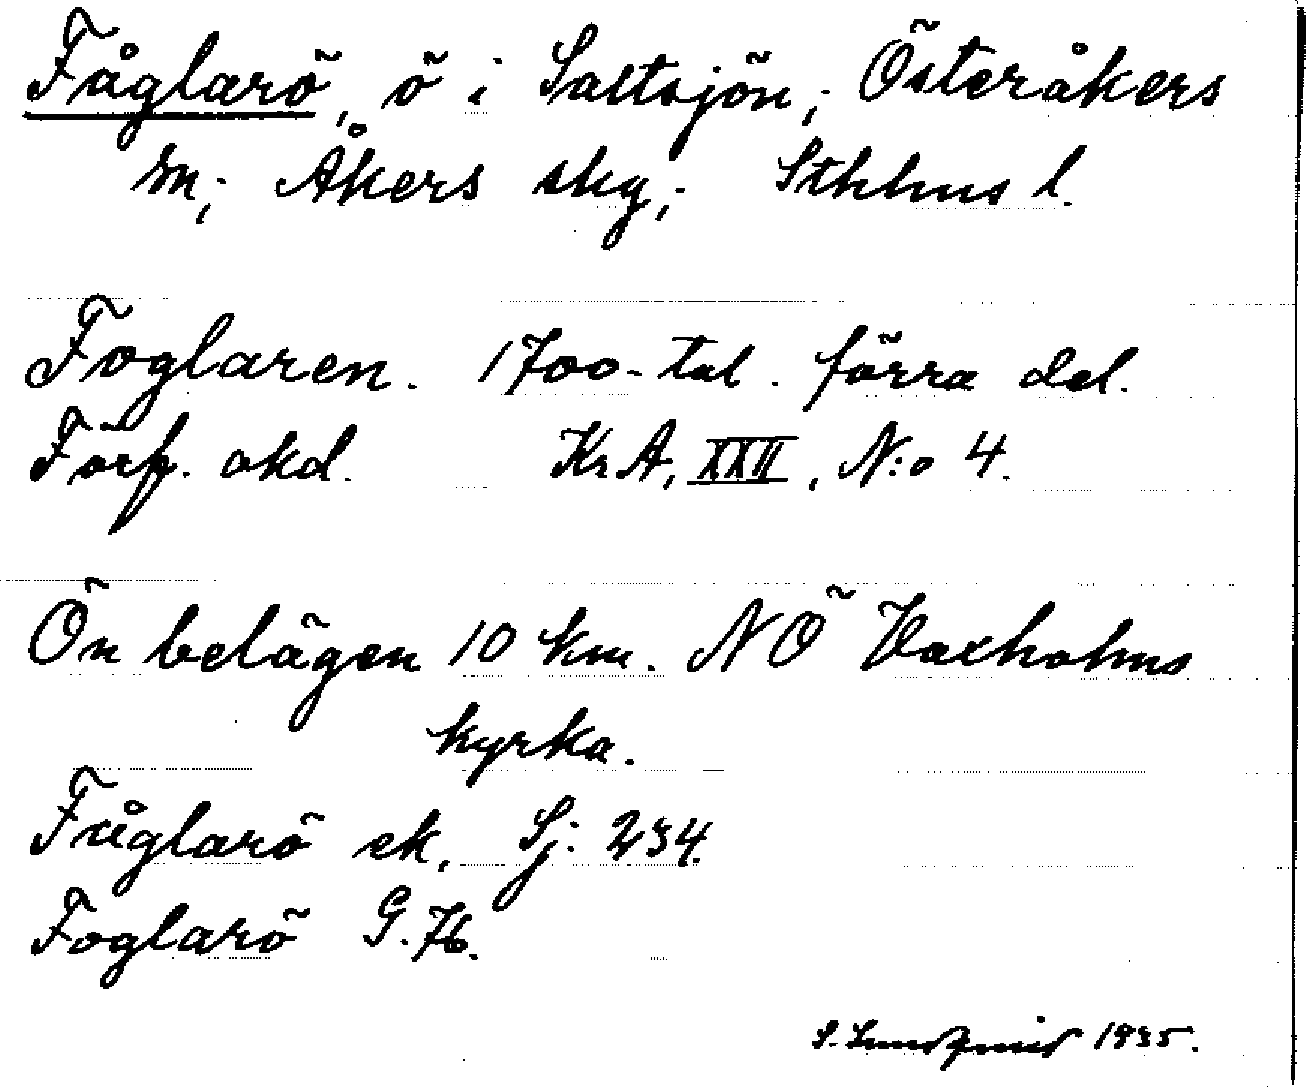 Fåglarö, ö i Saltsjön; Österåkers
sn; Åkers skg; Sthlms l.
Foglaren. 1700-tal. förra del.
Förp. okd. KrA, XXII, N:o 4.
Ön belägen 10 km. NÖ Vaxholms
kyrka.
Fåglarö ek. Sj: 234.
Foglarö G. 76.
S. Lundqvist 1935.